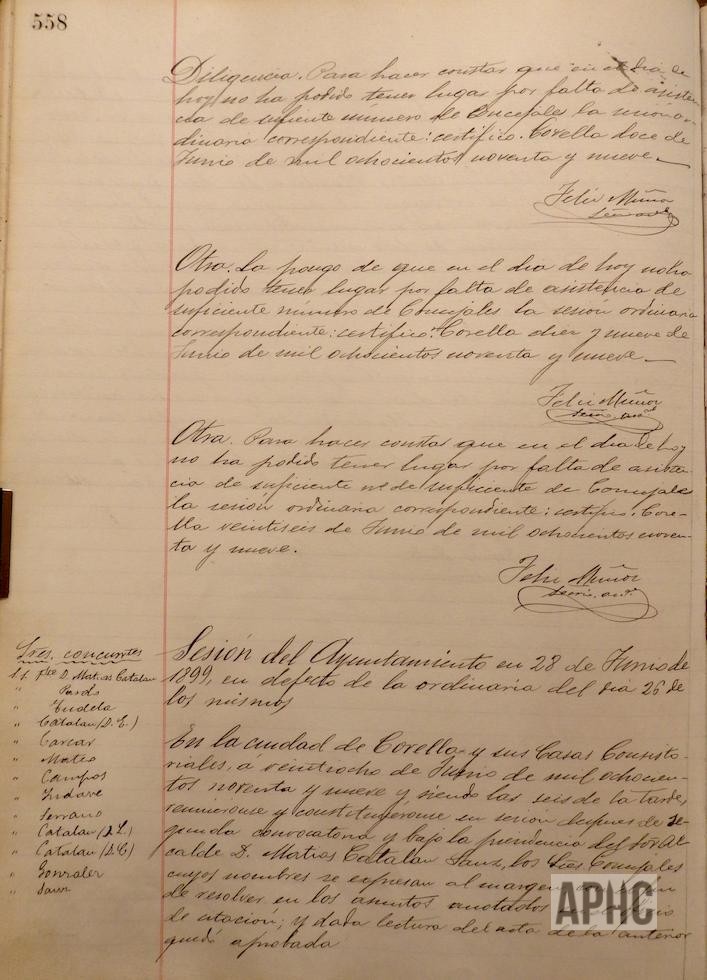 558
Diligencia. Para hacer constar que en el dia de
hoy no ha podido tener lugar por falta de asisten
cia de suficiente número de Concejales la sesión or
dinaria correspondiente: certifico. Corella doce de
Junio de mil ochocientos noventa y nueve.
Felix Muñoz
Otra. La pongo de que en el dia de hoy no ha
podido tener lugar por falta de asistencia de
suficiente número de Concejales la sesión ordinaria
correspondiente: certifico. Corella diez y nueve de
Junio de mil ochocientos noventa y nueve.
Felix Muñoz
Otra. Para hacer constar que en el dia de hoy
no ha podido tener lugar por falta de asisten
cia de suficiente de suficiente de Concejales
la sesión ordinaria correspondiente: certifico. Core-
lla veintiseis de Junio de mil ochocientos noven-
ta y nueve.
Felix Muñoz
Sres. concurrtes
D. Matias Catalan
" Pardo
" Tudela
" Catalan (D. E.)
" Carcar
" Mateo
" Campos
" Yndave
" Serrano
" Catalan (D. L.)
" Catalan (D. C.)
" Gonzalez
" Sanz
Sesión del Ayuntamiento en 28 de Junio de
1899, en defecto de la ordinaria del dia 26 de
los mismos
En la ciudad de Corella y sus Casas Consisto-
riales, á veintiocho de Junio de mil ochocien-
tos noventa y nueve y siendo las seis de la tarde,
reunieronse y constituyeronse en sesión despues de se-
gunda convocatoria y bajo la presidencia del Sor Al
calde D. Matias Catalan Sanz, los Sres Concejales
cuyos nombres se expresan al margen
de resolver en los asuntos anotados
de citación; y dada lectura del acta de la anterior
quedó aprobada
APHC